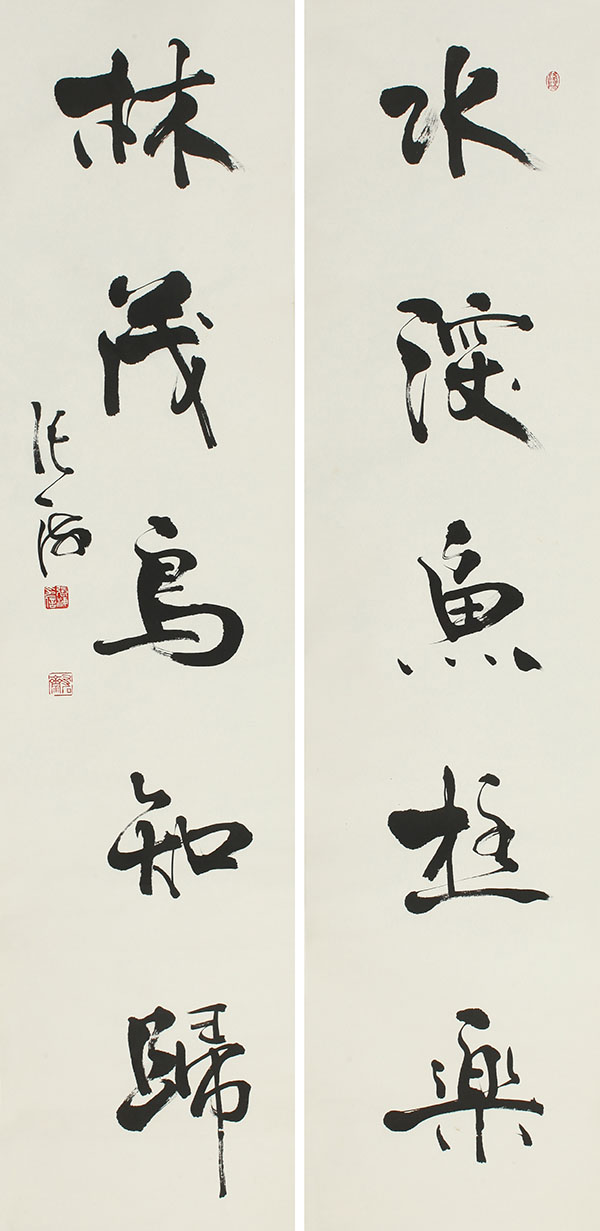 水深魚極樂
林茂鳥知歸
张海